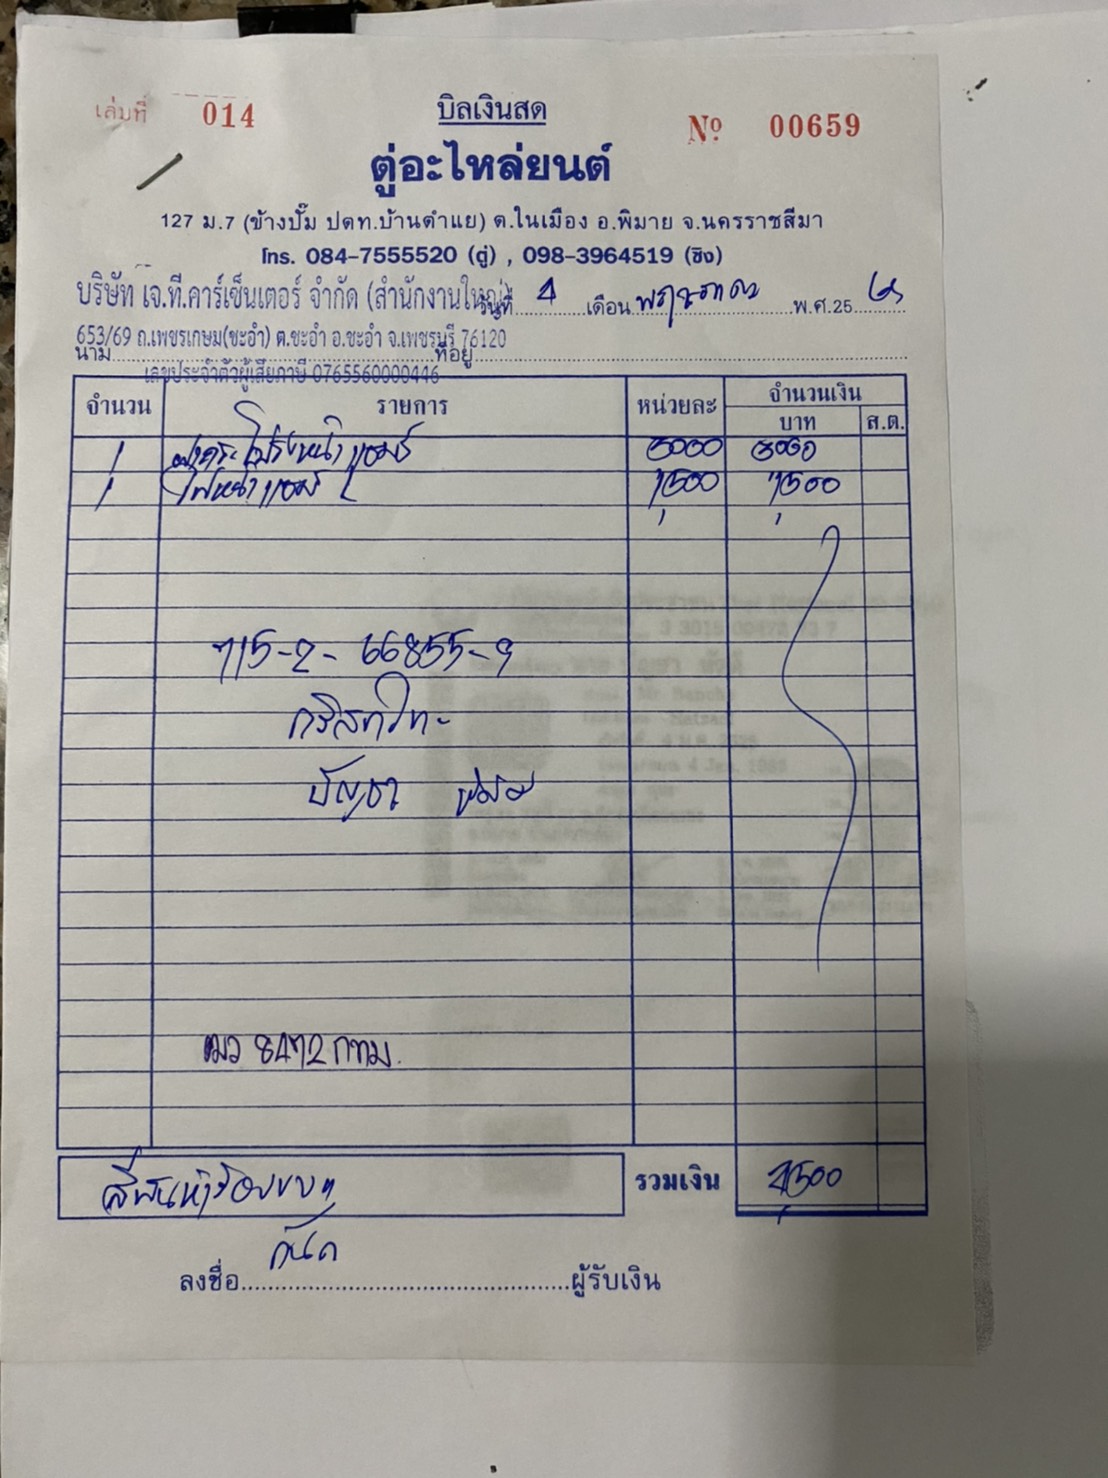 เล่มที่ 014
บิลเงินสด
Nº 00659
ตู่อะไหล่ยนต์
127 ม.7 (ข้างปั๊ม ปตท.บ้านตำแย) ต.ในเมือง อ.พิมาย จ.นครราชสีมา
โทร. 084-7555520 (ตู่) , 098-3964519 (ซิง)
บริษัท เจ.ที.คาร์เซ็นเตอร์ จำกัด (สำนักงานใหญ่)
วันที่ 4 เดือน พฤษภาคม พ.ศ.25
653/69 ถ.เพชรเกษม(ชะอำ) ต.ชะอำ อ.ชะอำ จ.เพชรบุรี 76120
นาม ที่อยู่
เลขประจำตัวผู้เสียภาษี 0765560000446
จำนวน รายการ หน่วยละ จำนวนเงิน
บาท ส.ต.
1 3000 3000
1 ไฟหน้า 1,500 1,500
715-2-66855-9
กสิกรไทย
บัญชา
8472 กทม.
สี่พันห้าร้อยบาท รวมเงิน 4,500
ลงชื่อ ผู้รับเงิน